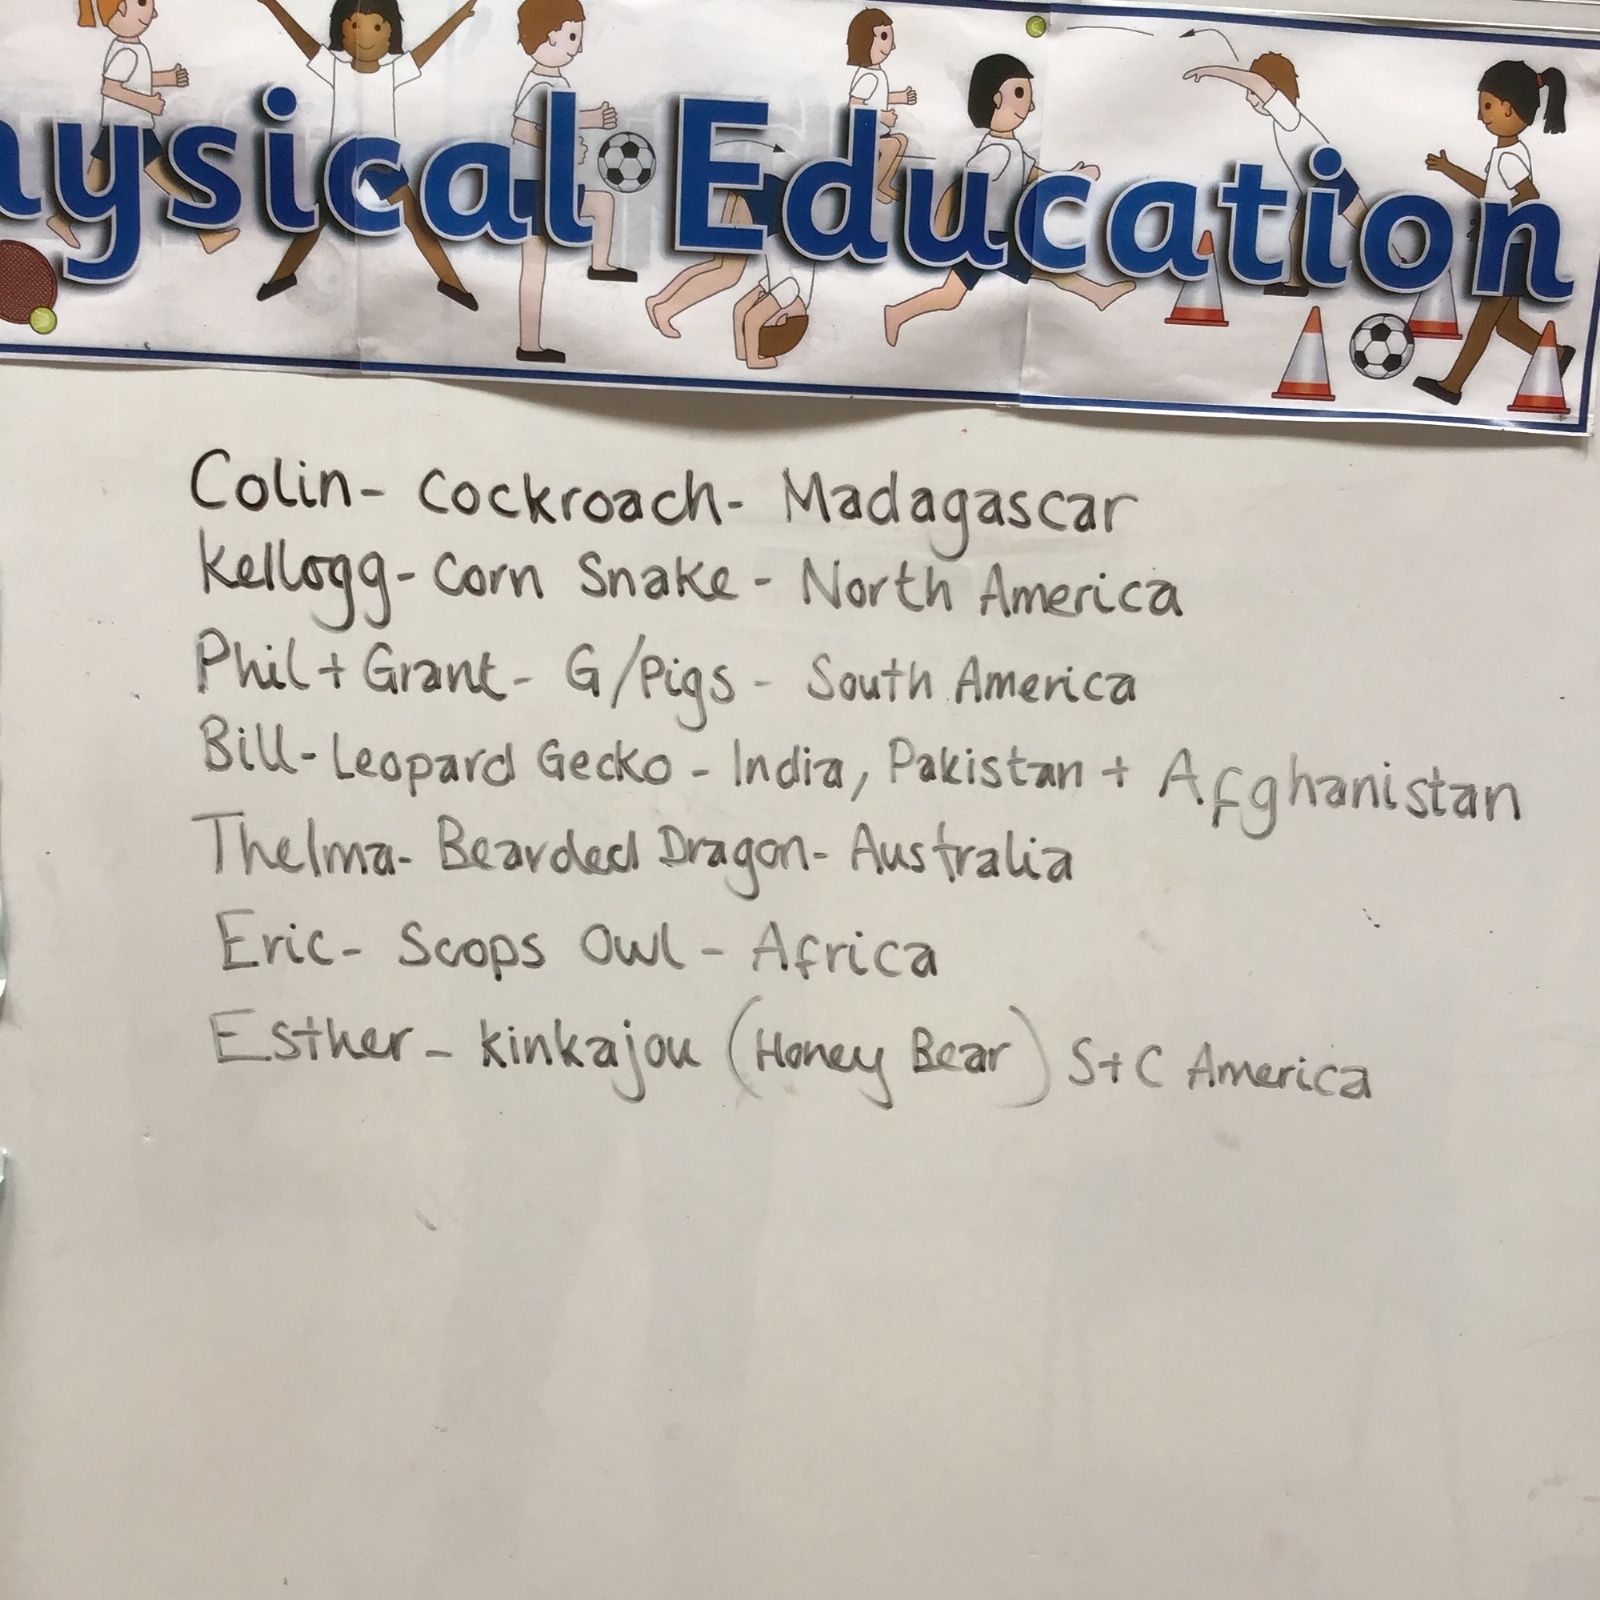 hysical Education
Colin- Cockroach- Madagascar
Kellogg- Corn Snake - North America
Phil + Grant- G/Pigs - South America
Bill- Leopard Gecko - India, Pakistan + Afghanistan
Thelma- Bearded Dragon- Australia
Eric- Scops Owl - Africa
Esther - Kinkajou (Honey Bear) S+C America